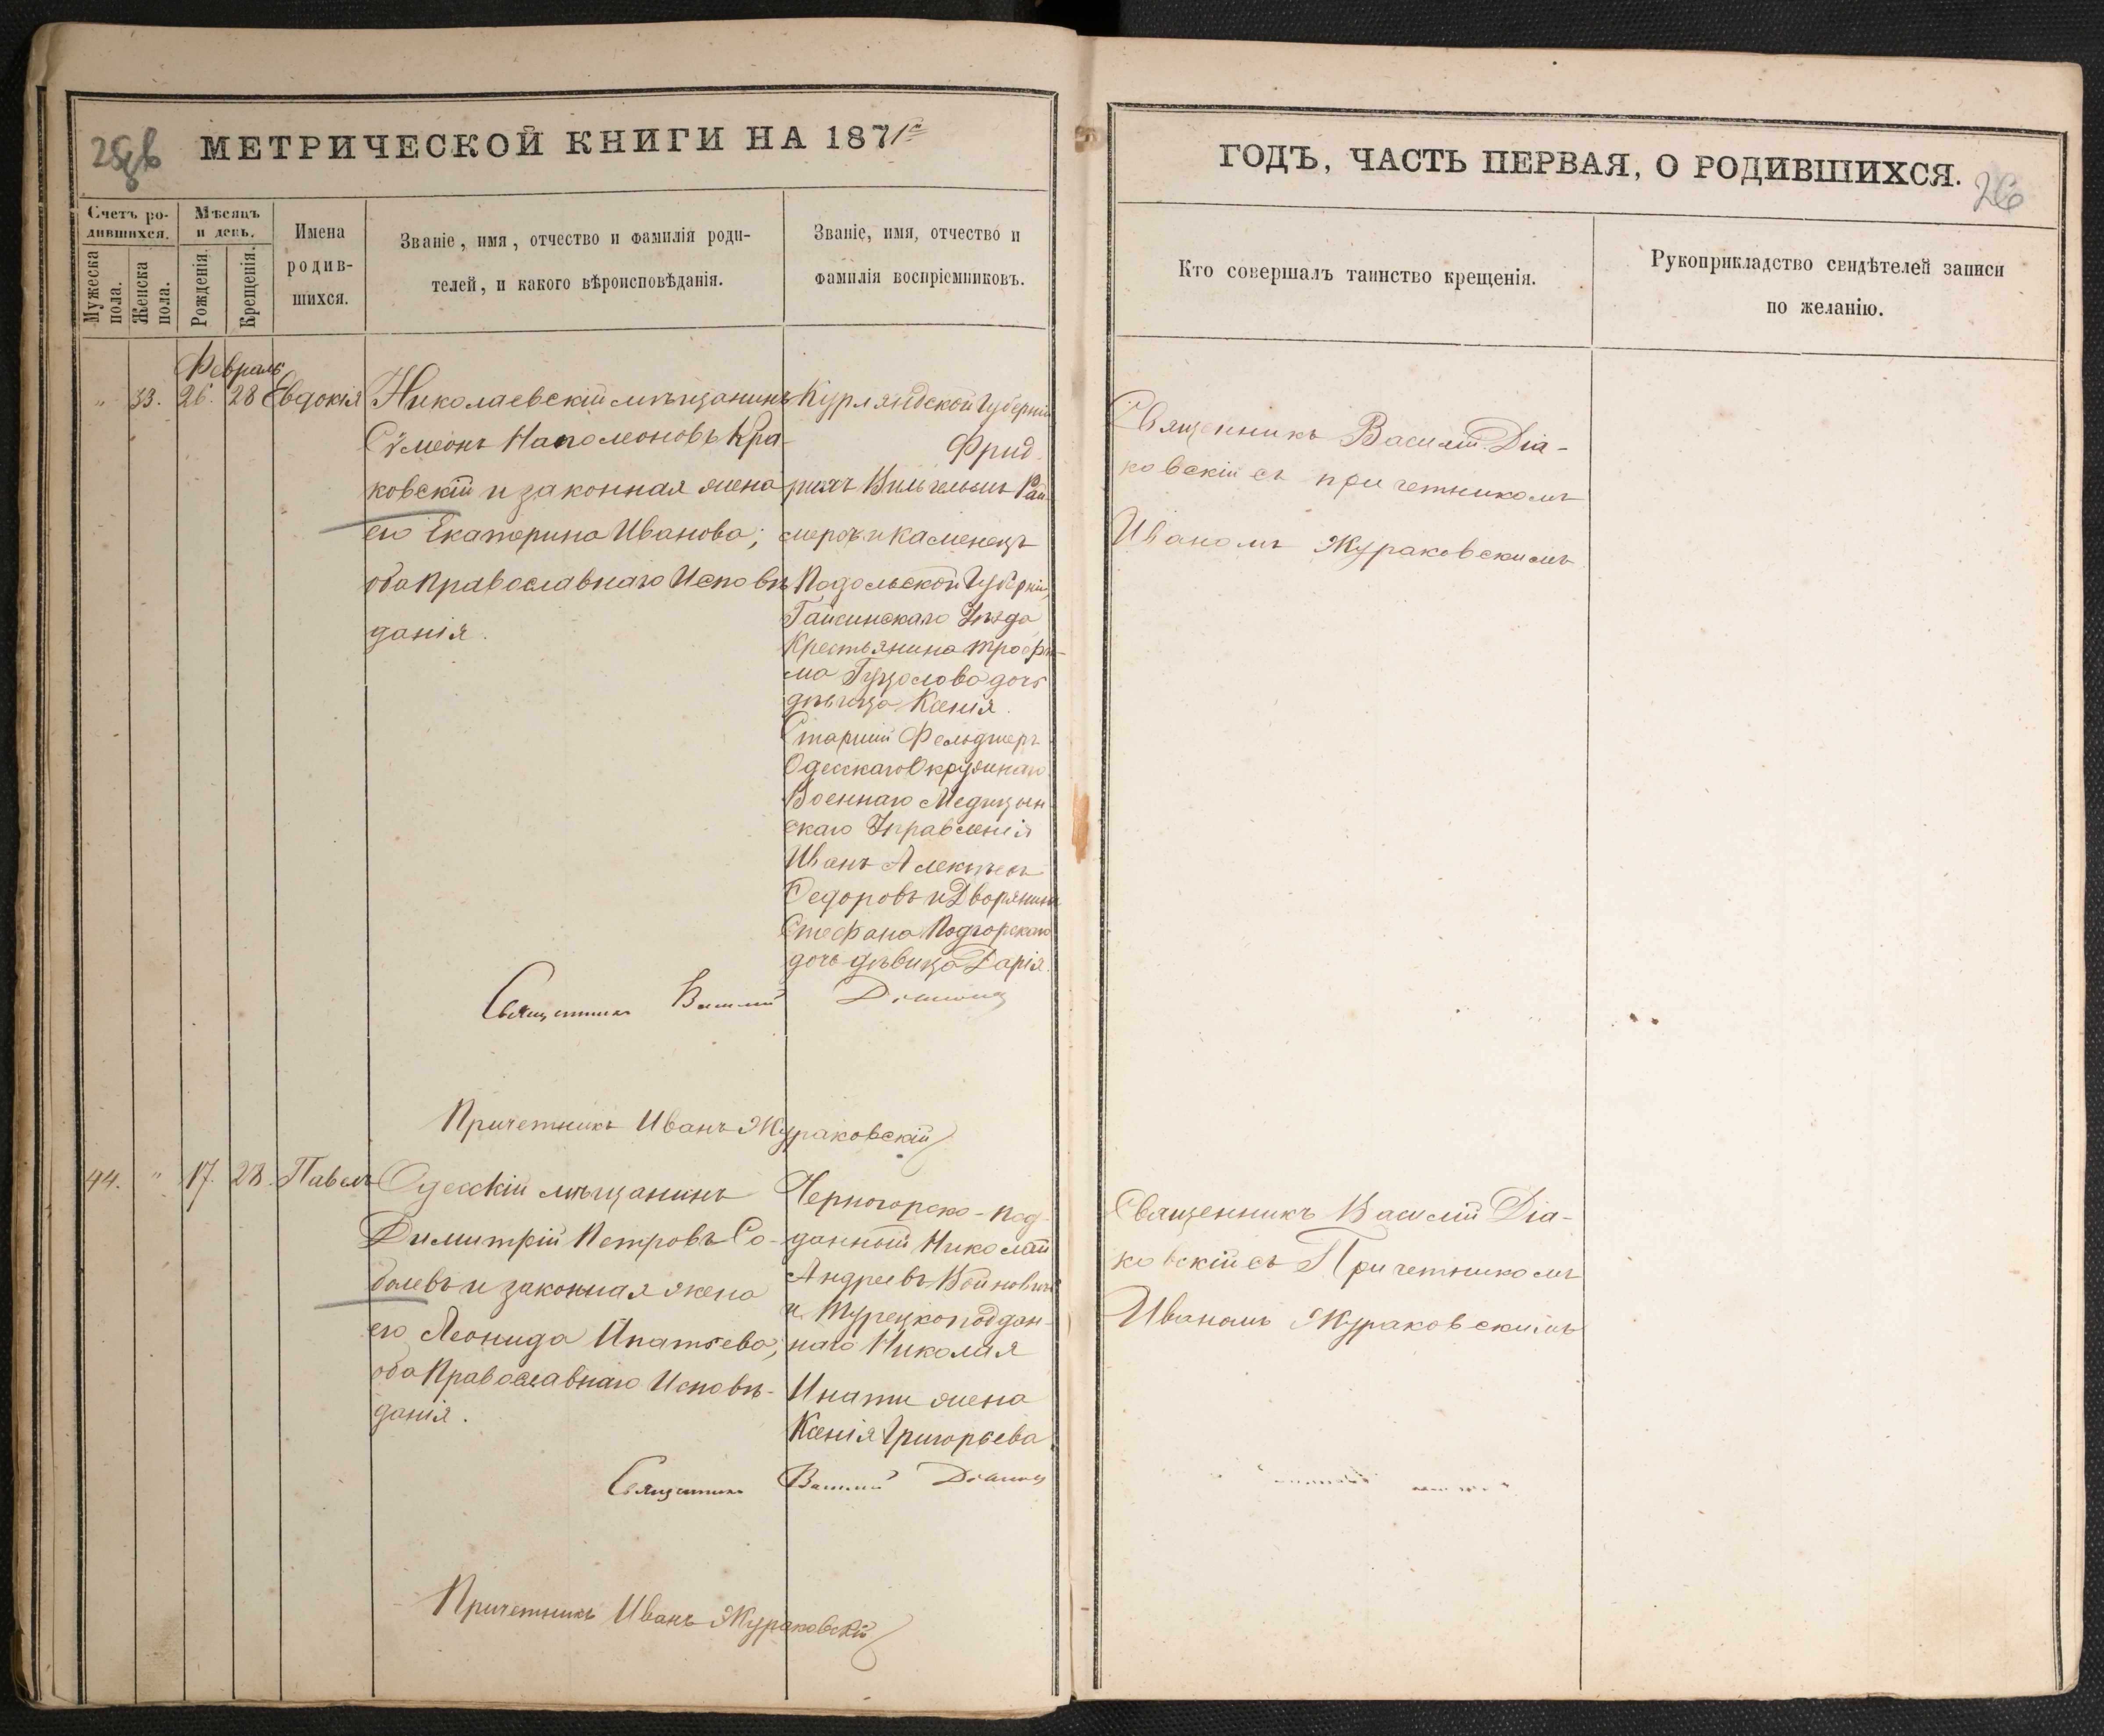 МЕТРИЧЕСКОЙ КНИГИ НА 1871
Счетъ ро-
дившихся.
Мужеска
пола.
Женска
пола.
Мѣсяцъ
и день.
Рожденія.
Крещенія.
Имена
родив-
шихся.
Званіе, имя, отчество и фамилія роди-
телей, и какого вѣроисповѣданія.
Званіе, имя, отчество и
фамилія воспріемниковъ.
Февраль
" 33. 26. 28 Евдокія
Николаевскій мѣщанинъ
Сѵмеонъ Наполеоновъ Кра-
ковскій и законная жена
его Екатерина Иванова;
оба Православнаго Исповѣ-
данія.
Курляндской Губерніи
Фрид-
рихъ Вильгельмъ
и Каменецъ
Подольской Губерніи,
Гайсинскаго Уѣзда
Крестьянина Трофи-
ма дочь
дѣвица Ксенія.
Старшій Фельдшеръ
Одесскаго Окружнаго
Военнаго Медицын-
скаго Управленія
Иванъ Алексѣевъ
Федоровъ и Дворянина
Стефана Подгорскаго
дочь дѣвица Дарія.
Священникъ Василій
Причетникъ Иванъ Жураковскій
44. " 17. 28. Павелъ
Одесскій мѣщанинъ
Димитрій Петровъ Со-
болевъ и законная жена
его Леонида Ипатьева;
оба Православнаго Исповѣ-
данія.
Черногорско-под-
данный Николай
Андреевъ Войновичъ
и Турецкоподдан-
наго Николая
Инати жена
Ксенія Григорьева.
Священникъ Василій
Причетникъ Иванъ Жураковскій
ГОДЪ, ЧАСТЬ ПЕРВАЯ, О РОДИВШИХСЯ.
26
Кто совершалъ таинство крещенія.
Рукоприкладство свидѣтелей записи
по желанію.
Священникъ Василій Діа-
ковскій съ причетникомъ
Иваномъ Жураковскимъ
Священникъ Василій Діа-
ковскій съ Причетникомъ
Иваномъ Жураковскимъ